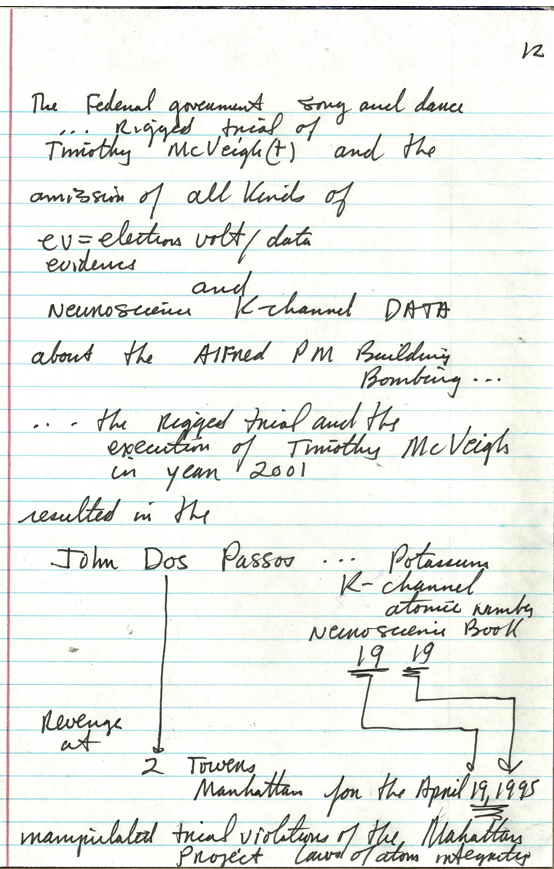 12
The Federal goverment song and dance
... Rigged trial of
Timothy McVeigh(t) and the
amission of all kinds of
ev=electron volt/data
evidence
and
Neuroscience K-channel DATA
about the Alfred P M Building
Bombing ...
... the Rigged trial and the
execution of Timothy McVeigh
in year 2001
resulted in the
John Dos Passos ... Potassium
K-channel
atomic number
Neuroscience Book
19 19
Revenge
at
2 Towers
Manhattan for the April 19, 1995
manipulated trial violations of the Mahattan
Project laws of atom integrity